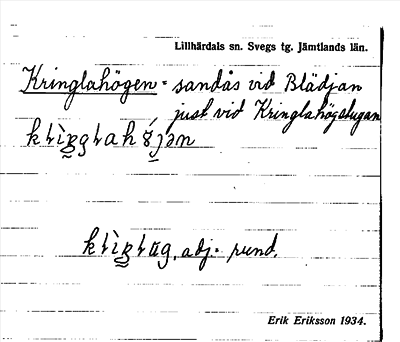 Lillhärdals sn. Svegs tg. Jämtlands län.
Kringlahögen = sandås vid Blädjan
just vid Kringlahögstugan
adj. rund.
Erik Eriksson 1934.